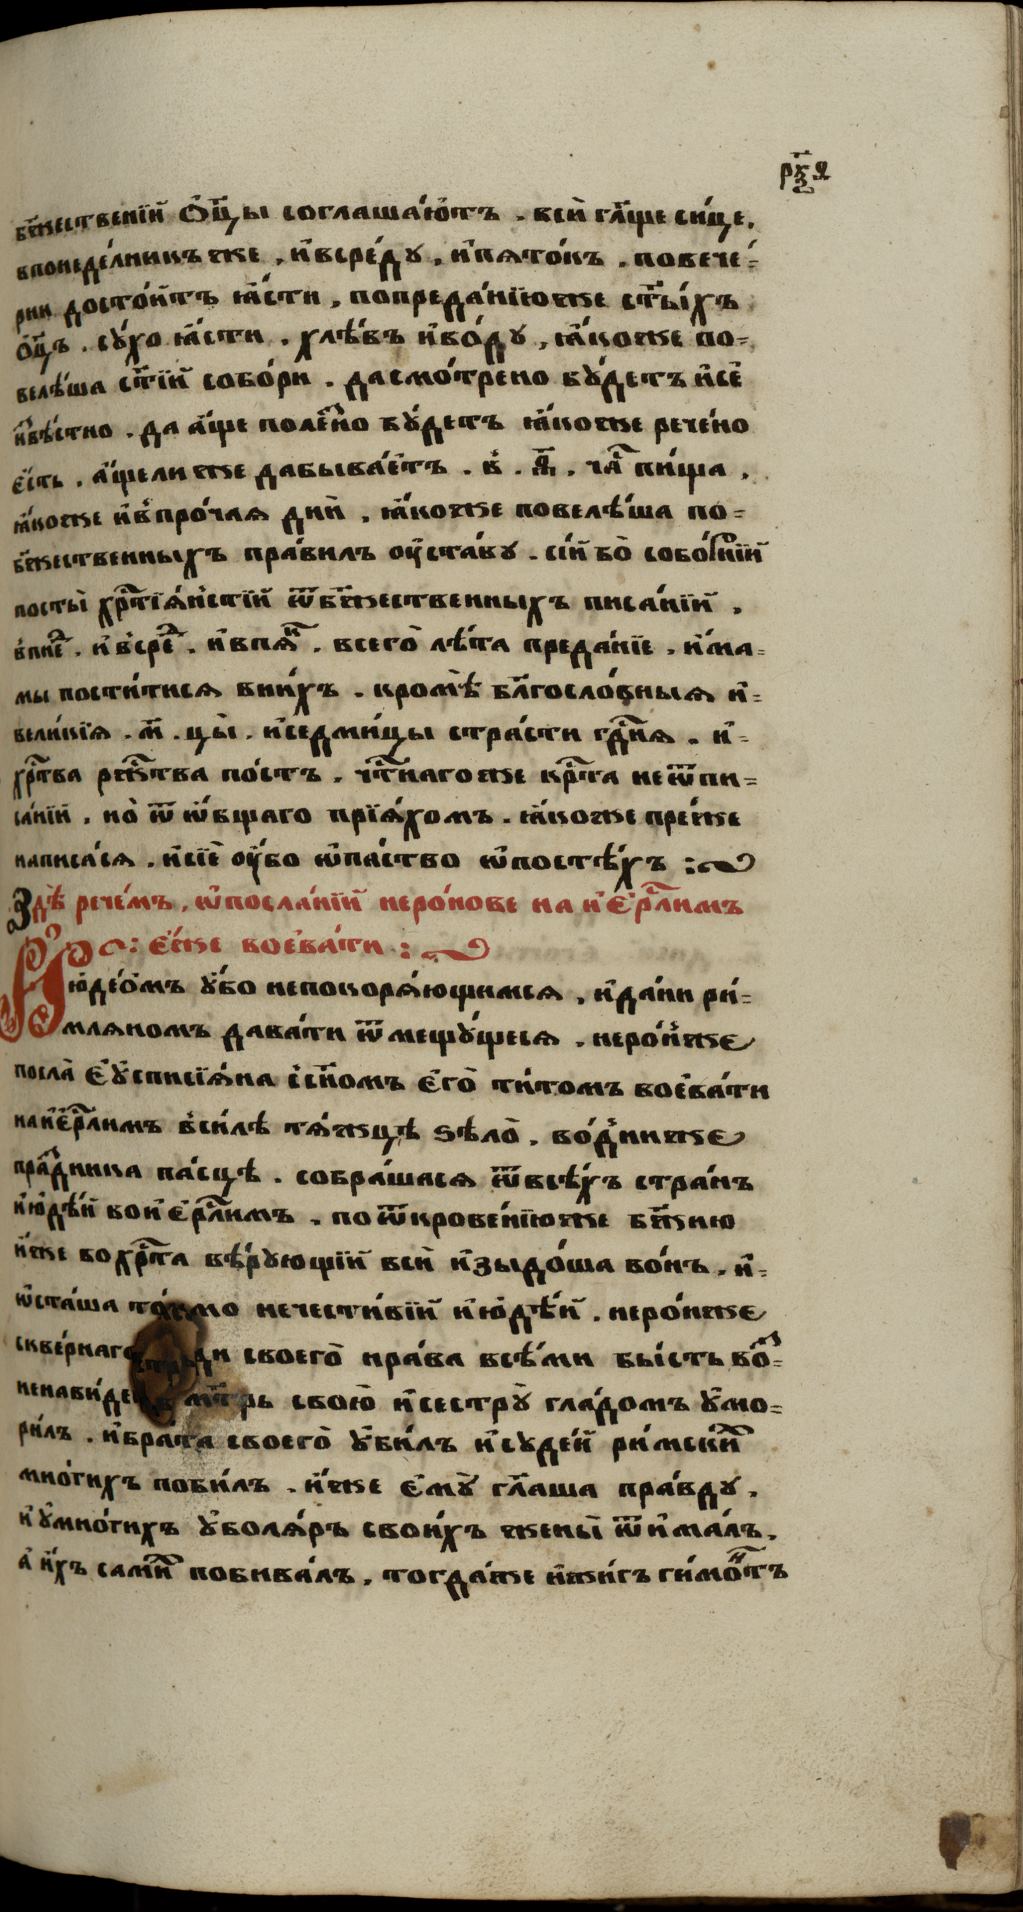 рѯѧ
бж҃ественїи ѻ҆ц҃ы соглаша́ютъ . всѝ гл҃юще си́це ,
впонедѣ́лникъ же , и҆всре́ду , и҆пѧто́къ . повече́-
рни досто́итъ ꙗ҆́сти , попреда́нїю же ст҃ы́хъ
ѻ҆ц҃ъ . су́хо ꙗ҆́сти . хлѣ́бъ и҆во́ду , ꙗ҆́коже по-
велѣ́ша ст҃їи собо́ри . дасмо́трено бу́детъ и҆сѐ
и҆звѣ́стно . да а҆́ще поле́зно бу́детъ ꙗ҆́коже рече́но
є҆́сть . а҆́щели же дабыва́етъ . в҃ . ꙗ҃ . ча҃ пи́ща ,
ꙗ҆́коже и҆впро́чаѧ днѝ , ꙗ҆́коже повелѣ́ша по-
бж҃ественныхъ пра́вилъ ᲂу҆ста́ву . сі́и бо̀ собо́рнїи
посты̀ хрⷭ҇тїѧ́нстїи ѿбж҃ественныхъ писа́нїи .
впнеⷣ . и҆всреⷣ . и҆впѧⷦ҇ . всего̀ лѣ́та преда́нїе . и҆́ма-
мы пости́тисѧ вни́хъ . кромѣ̀ блг҃осло́вныѧ и҆-
вели́кїѧ . м҃ . цы̀ . и҆седми́цы стра́сти гдⷭ҇нѧ . и҆-
хрⷭ҇тва ржⷭ҇тва по́стъ . чⷭ҇тнагоже крⷭ҇та неѿпи-
са́нїи . но̀ ѿ ѡ҆́бщаго прїѧ́хомъ . ꙗ҆́коже пре́же
написа́сѧ . и҆сїѐ ᲂу҆́бо ѡ҆па́ство ѡ҆посте́хъ :~
Здѣ̀ рече́мъ , ѡ҆посла́нїи неро́нове на и҆єрⷭ҇лимъ
є҆́же воева́ти :~
І҆юде́омъ у҆́бо непокорѧ́ющимсѧ , и҆да́ни ри́-
млѧномъ дава́ти ѿмещу́щесѧ . неро́нже
посла̀ є҆у҆списїѧ́на ссн҃омъ є҆го̀ ти́томъ воева́ти
наи҆єрⷭ҇лимъ вси́лѣ тѧ́жцѣ ѕѣло̀ . во́дниже
пра́здника па́сцѣ . собра́шасѧ ѿвсѣ́хъ стра́нъ
и҆юдѣ́и вои҆єрⷭ҇лимъ . по ѿкрове́нїюже бж҃їю
и҆́же вохрⷭ҇та вѣ́рующїи всѝ и҆зыдо́ша во́нъ . и҆-
ѡ҆ста́ша то́кмо нечести́вїи и҆юдѣ́и . неро́нже
скве́рнаго ра́ди своего̀ нра́ва всѣ́ми бы́сть во́з-
ненави́де мт҃рь свою̀ и҆сестру̀ гла́домъ у҆мо-
ри́лъ . и҆бра́та своего̀ у҆би́лъ и҆суде́и ри́мскиⷯ
мно́гихъ поби́лъ . и҆́же є҆му̀ гл҃аша пра́вду .
и҆у҆мно́гихъ у҆болѧ́ръ свои́хъ жены̀ ѿима́лъ .
а҆ и҆́хъ сами́ⷯ побива́лъ . тогда́же